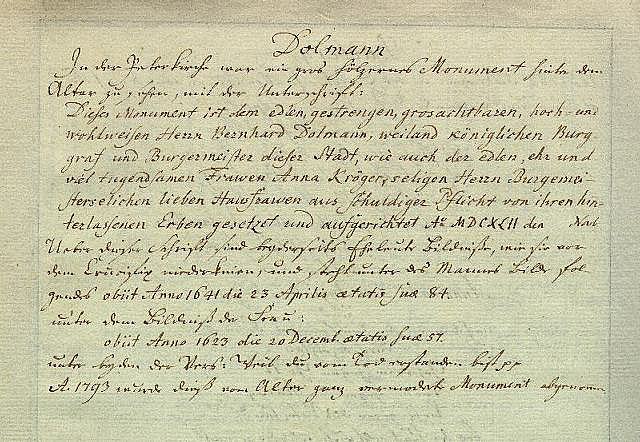 Dolmann
In der Peterkirche war ein gros höltzernes Monument hinter dem
Altar zu sehen, mit der Unterschrift:
Dieses Monument ist dem edlen, gestrengen, grosachtbaren, hoch- und
wohlweisen Herrn Bernhard Dolmann, weiland königlichen Burg
graf und Burgermeister dieser Stadt, wie auch der edlen, ehr und
viel tugendsamen Frawen Anna Kröger, seligen Herrn Burgemei-
sterselichen lieben Hawsfrawen aus schuldiger Pflicht von ihren hin-
terlassenen Erben gesetzet und aufgerichtet Aᵒ MDCXLII den
Ueber dieser Schrift sind beyderseits Eheleute Bildniße, wie sie vor
dem Crucifix niederknien, und steht unter des Mannes Bilde fol-
gendes obiit Anno 1641 die 23 Aprilis ætatis suæ 84.
unter dem Bildniß der Frau:
obiit Anno 1623 die 20 Decemb. ætatis suæ 57.
unter beyden der Vers: Weil du vom Tod erstanden bist pp
A. 1793 wurde dieß vom Alter ganz vermoderte Monument abgenom̅en